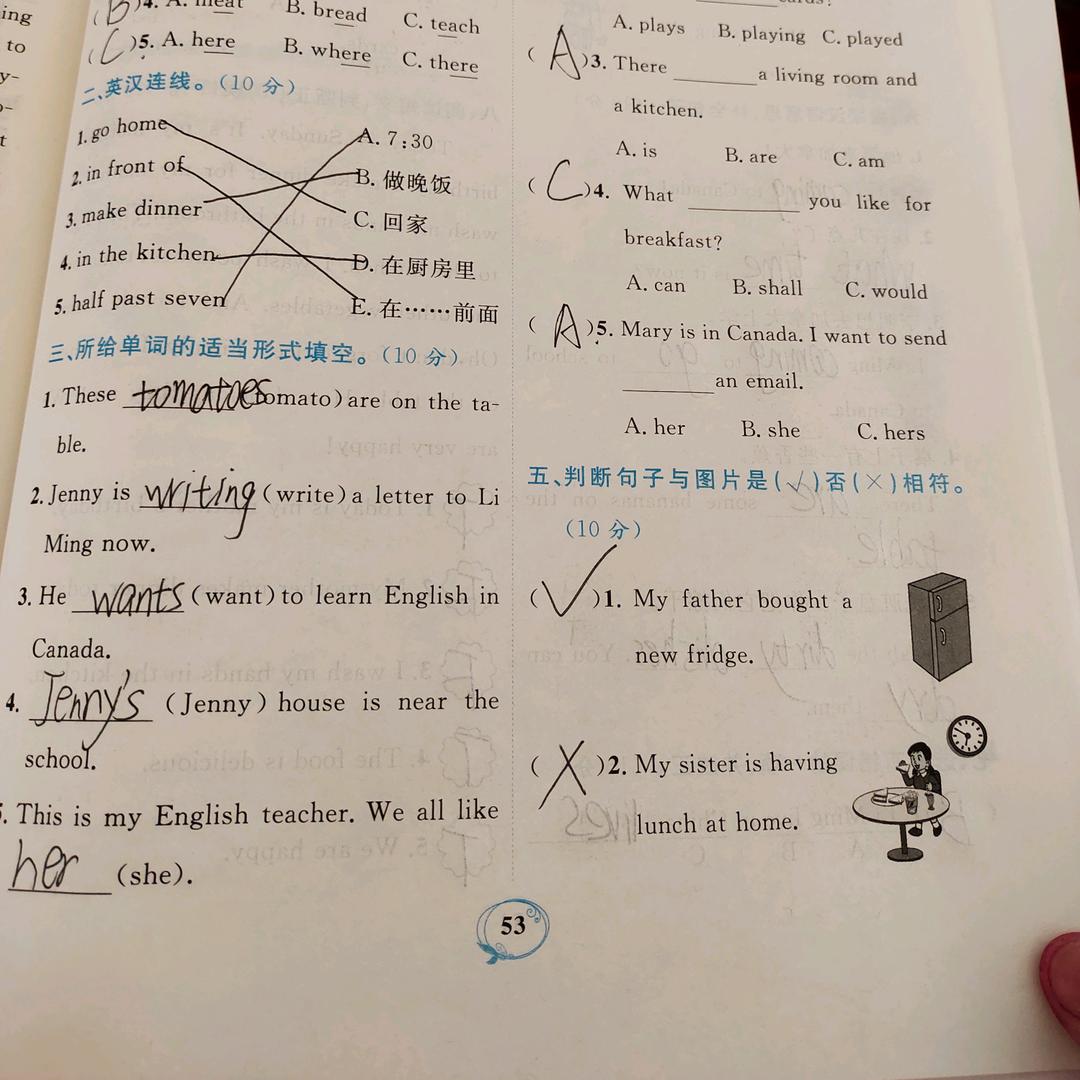 ing
to
y-
t
(B)4. A. meat B. bread C. teach
(C)5. A. here B. where C. there
二、英汉连线。(10 分)
1. go home A. 7:30
2. in front of B. 做晚饭
3. make dinner C. 回家
4. in the kitchen D. 在厨房里
5. half past seven E. 在……前面
三、所给单词的适当形式填空。(10 分)
1. These tomatoes (tomato) are on the ta-
ble.
2. Jenny is writing (write) a letter to Li
Ming now.
3. He wants (want) to learn English in
Canada.
4. Jenny's (Jenny) house is near the
school.
5. This is my English teacher. We all like
her (she).
A. plays B. playing C. played
(A)3. There ________ a living room and
a kitchen.
A. is B. are C. am
(C)4. What ________ you like for
breakfast?
A. can B. shall C. would
(A)5. Mary is in Canada. I want to send
________ an email.
A. her B. she C. hers
五、判断句子与图片是(√)否(×)相符。
(10 分)
(√)1. My father bought a
new fridge.
(×)2. My sister is having
lunch at home.
53